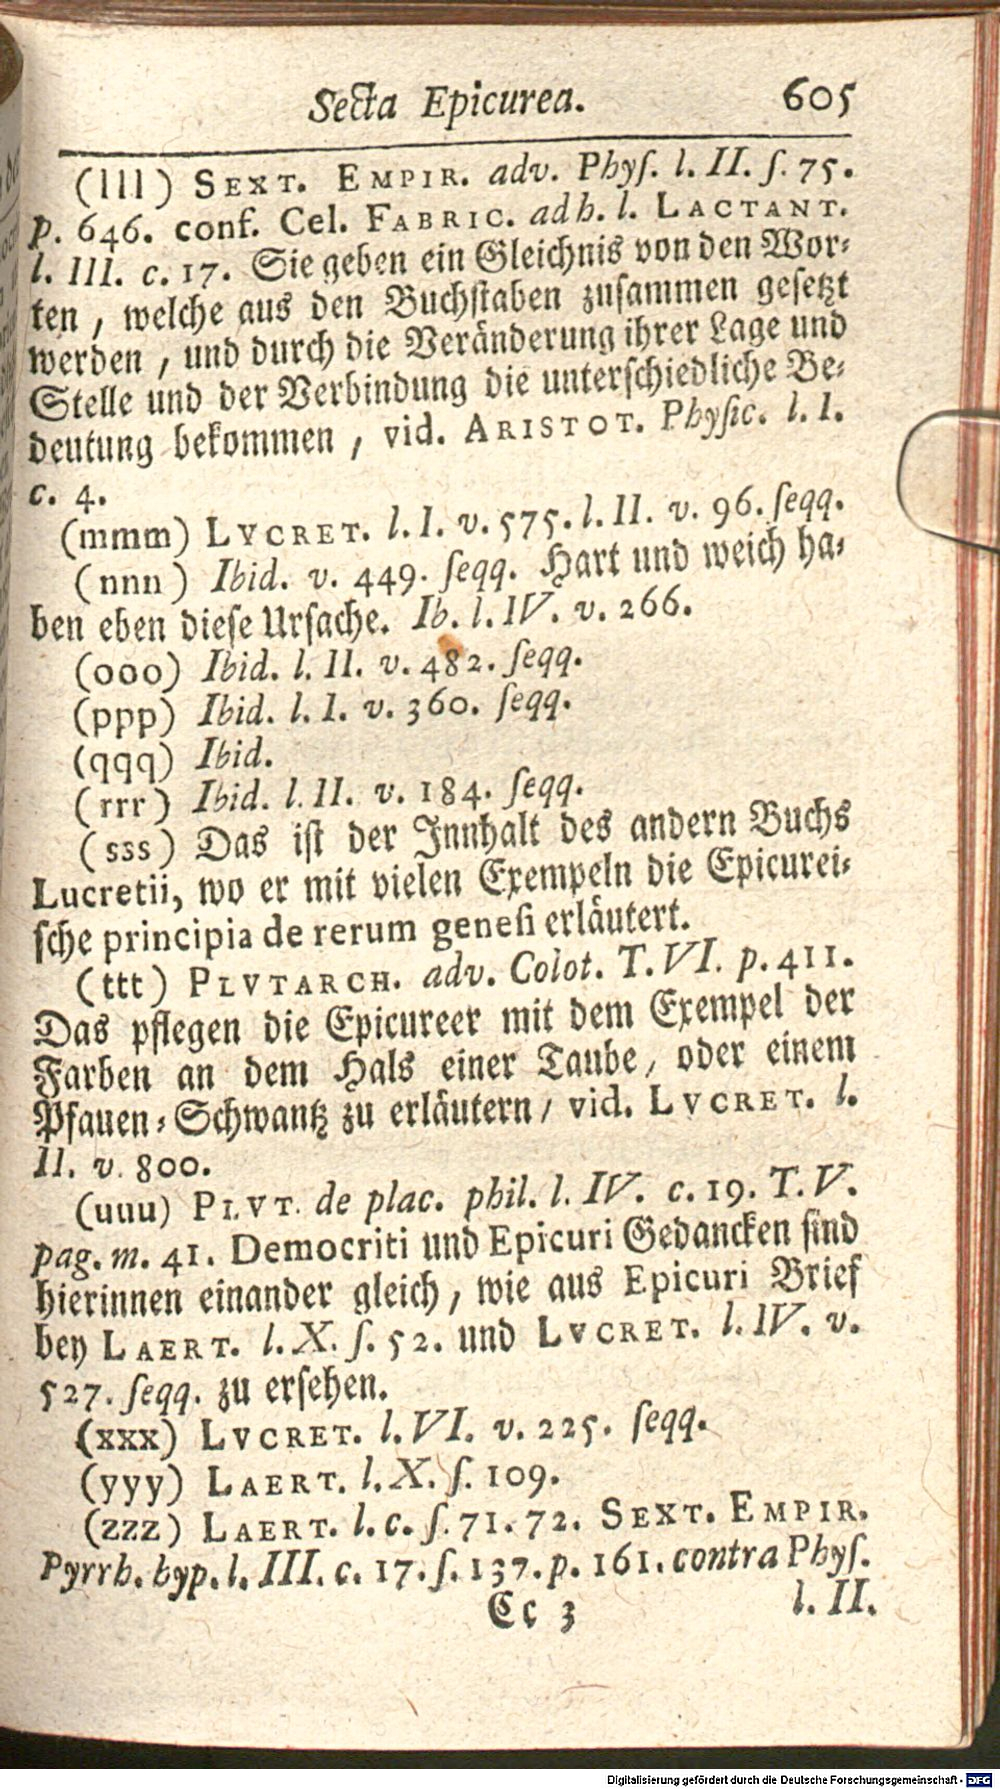 Secta Epicurea. 605
(lll) SEXT. EMPIR. adv. Phyſ. l. II. ſ. 75.
p. 646. conf. Cel. FABRIC. ad h. l. LACTANT.
l. III. c. 17. Sie geben ein Gleichnis von den Wor-
ten, welche aus den Buchſtaben zuſammen geſetzt
werden, und durch die Veränderung ihrer Lage und
Stelle und der Verbindung die unterſchiedliche Be-
deutung bekommen, vid. ARISTOT. Phyſic. l. I.
c. 4.
(mmm) LVCRET. l. I. v. 575. l. II. v. 96. ſeqq.
(nnn) Ibid. v. 449. ſeqq. Hart und weich ha-
ben eben dieſe Urſache. Ib. l. IV. v. 266.
(ooo) Ibid. l. II. v. 482. ſeqq.
(ppp) Ibid. l. I. v. 360. ſeqq.
(qqq) Ibid.
(rrr) Ibid. l. II. v. 184. ſeqq.
(sss) Das iſt der Innhalt des andern Buchs
Lucretii, wo er mit vielen Exempeln die Epicurei-
ſche principia de rerum geneſi erläutert.
(ttt) PLVTARCH. adv. Colot. T. VI. p. 411.
Das pflegen die Epicureer mit dem Exempel der
Farben an dem Hals einer Taube, oder einem
Pfauen-Schwantz zu erläutern, vid. LVCRET. l.
II. v. 800.
(uuu) PLVT. de plac. phil. l. IV. c. 19. T. V.
pag. m. 41. Democriti und Epicuri Gedancken ſind
hierinnen einander gleich, wie aus Epicuri Brief
bey LAERT. l. X. ſ. 52. und LVCRET. l. IV. v.
527. ſeqq. zu erſehen.
(xxx) LVCRET. l. VI. v. 225. ſeqq.
(yyy) LAERT. l. X. ſ. 109.
(zzz) LAERT. l. c. ſ. 71. 72. SEXT. EMPIR.
Pyrrh. hyp. l. III. c. 17. ſ. 137. p. 161. contra Phyſ.
Cc 3 l. II.
Digitalisierung gefördert durch die Deutsche Forschungsgemeinschaft - DFG